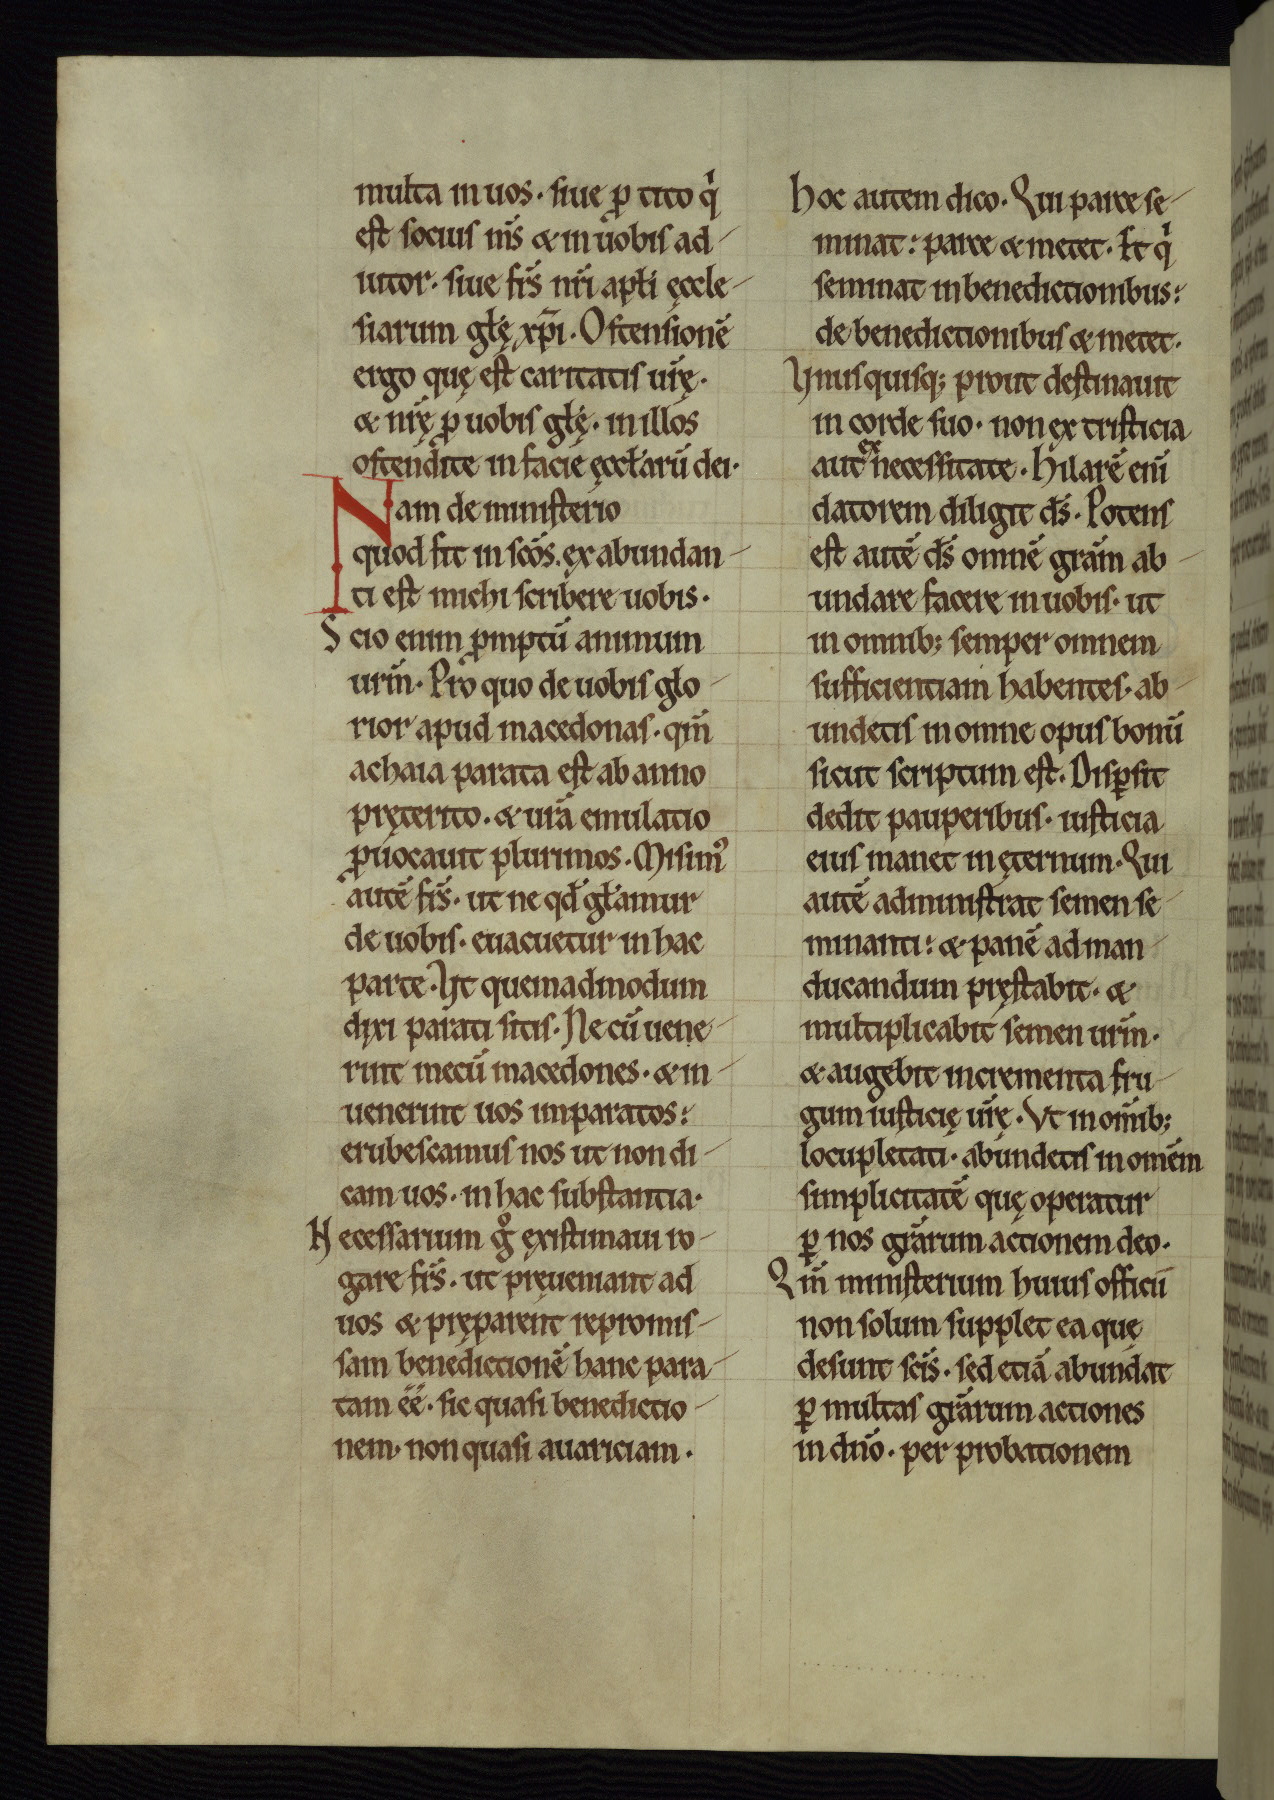 multa in uos · siue ꝓ tito qͥ
est socius mꝰs & in uobis ad-
iutor · siue fr̃s nr̃i apƚi ęccle-
siarum gƚę xp̃i · Ostensionẽ
ergo quę est caritatis ur̃ę ·
& nr̃ę ꝓ uobis gƚę · in illos
ostendite in faciẽ ęccƚarũ dei ·
Nam de ministerio
quod fit in sc̃os . ex abundan-
ti est michi scribere uobis ·
Scio enim ꝓmptũ animum
ur̃m · Pro quo de uobis glo-
rior apud macedonas · qm̃
achaia parata est ab anno
pręterito · & ur̃a emulatio
ꝓuocauit plurimos · Misimꝰ
autẽ fr̃s · ut ne qđ gƚamur
de uobis · euacuetur in hac
parte · Ut quemadmodum
dixi parati sitis · Ne cũ uene-
rint mecũ macedones · & in-
uenerint uos imparatos :
erubescamus nos ut non di-
cam uos · in hac substantia ·
Necessarium gͦ existimaui ro-
gare fr̃s · ut pręueniant ad
uos & pręparent repromis-
sam benedictionẽ hanc para-
tam ẽẽ · sic quasi benedictio-
nem · non quasi auariciam ·
hoc autem dico · Qui parce se-
minat : parce & metet · Et qͥ
seminat in benedictionibus :
de benedictionibus & metet ·
Unusquisq; prout destinauit
in corde suo · non ex tristicia
aut ex necessitate · Hilarẽ enĩ
datorem diligit d̃s · Potens
est autẽ d̃s omnẽ gr̃am ab-
undare facere in uobis · ut
in omnib; semper omnem
sufficientiam habentes · ab-
undetis in omne opus bonũ
sicut scriptum est · Dispersit
dedit pauperibus · iusticia
eius manet in ęternum · Qui
autẽ administrat semen se-
minanti : & panẽ ad man-
ducandum pręstabit · &
multiplicabit semen ur̃m ·
& augebit incrementa fru-
gum iusticię ur̃ę · Vt in om̃ib;
locupletati · abundetis in om̃em
simplicitatẽ quę operatur
ꝑ nos gr̃arum actionem deo ·
Qm̃ ministerium huius officii
non solum supplet ea quę
desunt sc̃is · sed etiã abundat
ꝑ multas gr̃arum actiones
in dn̄o · per probationem